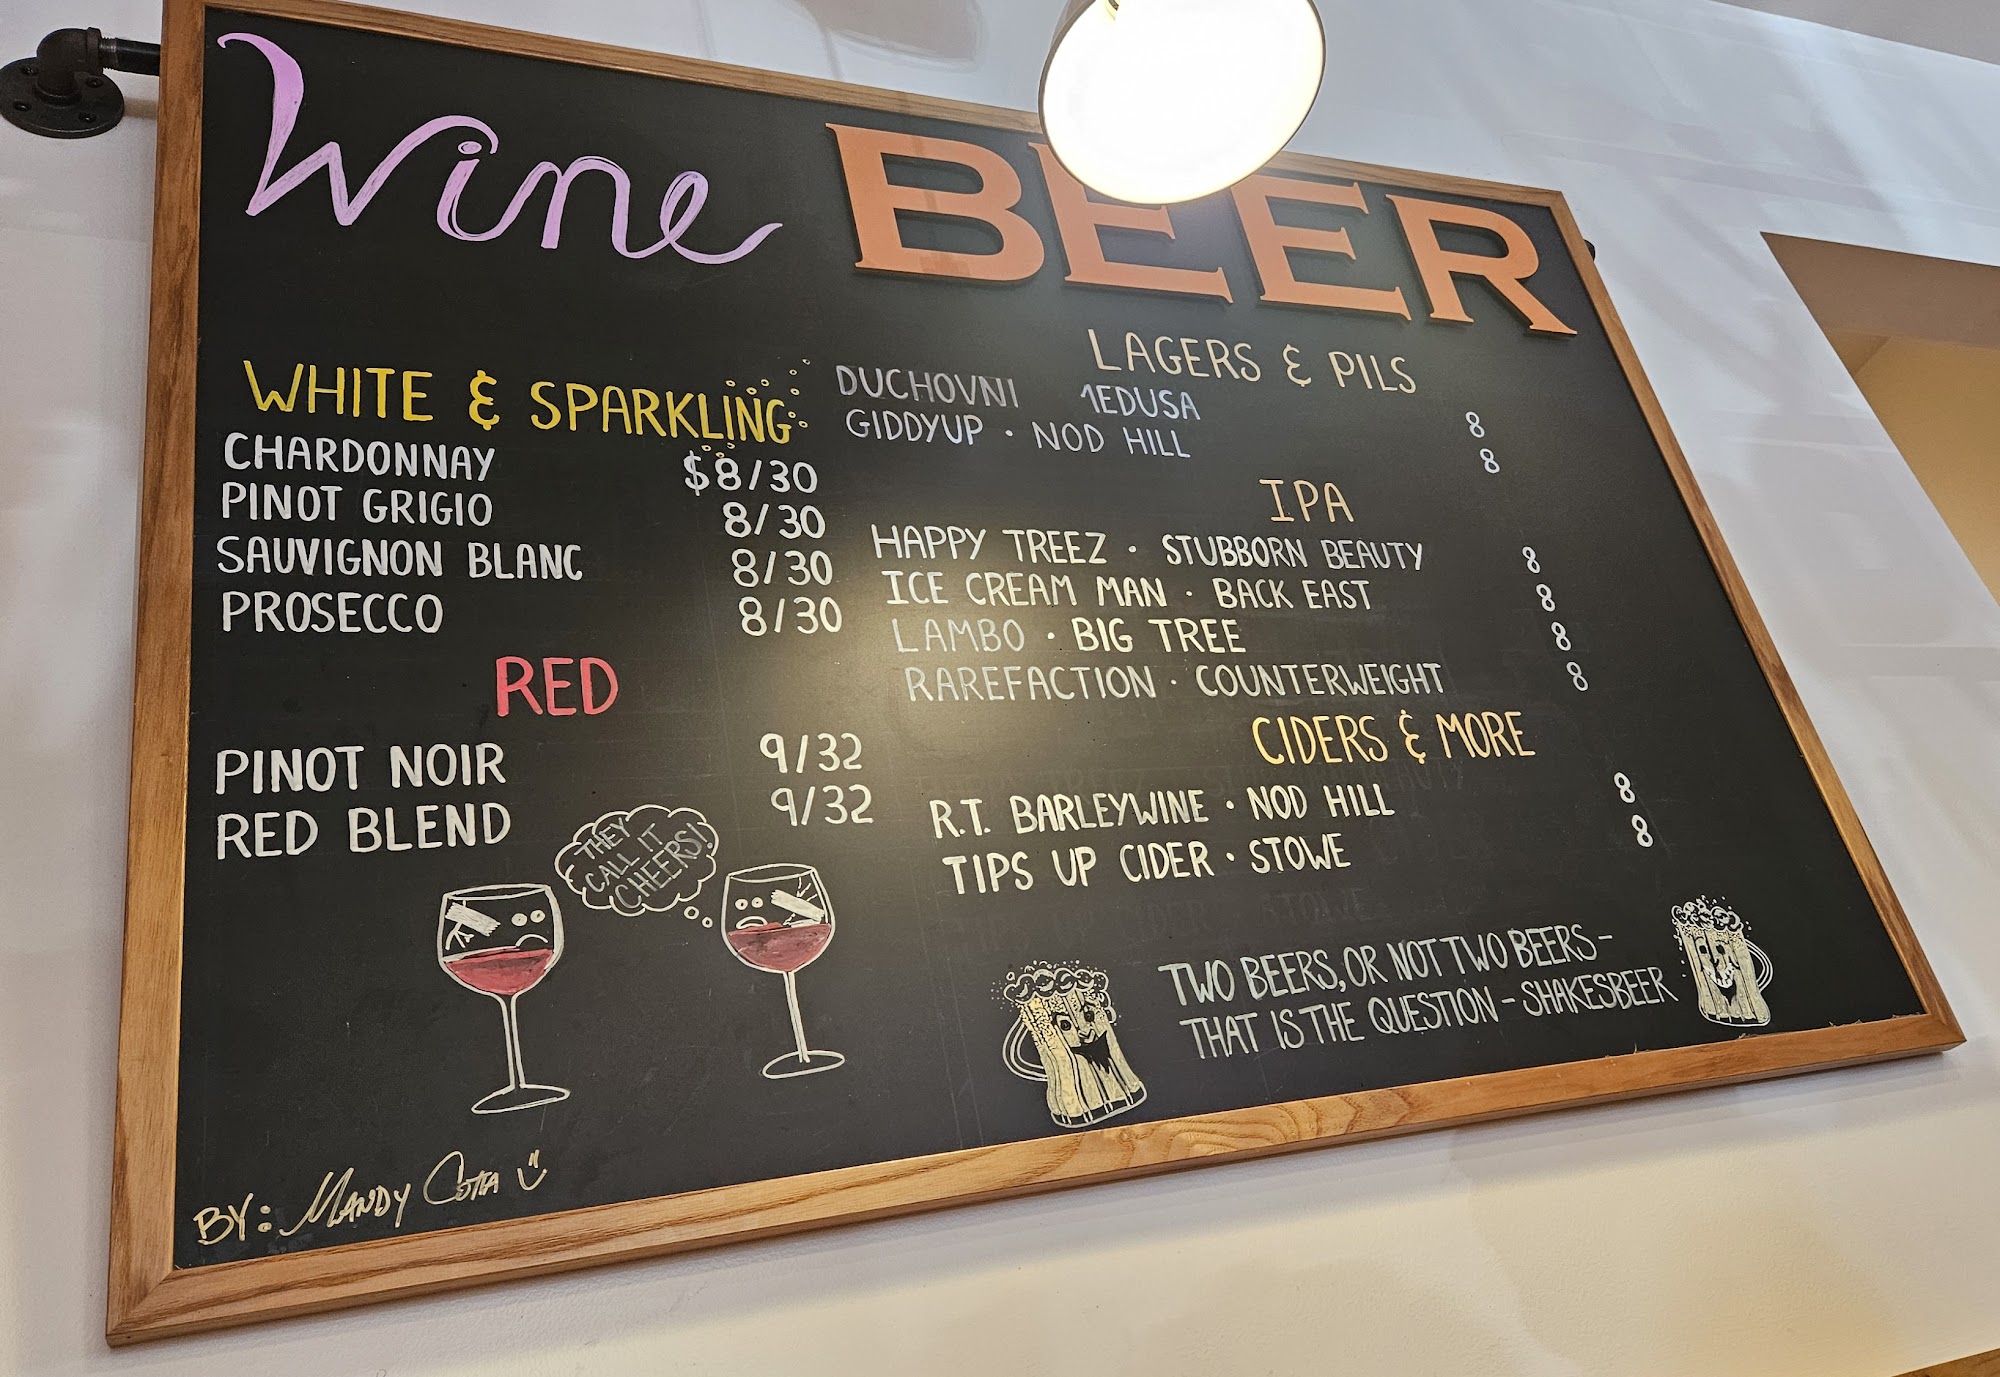 Wine
WHITE & SPARKLING
CHARDONNAY $8/30
PINOT GRIGIO 8/30
SAUVIGNON BLANC 8/30
PROSECCO 8/30
RED
PINOT NOIR 9/32
RED BLEND 9/32
THEY
CALL IT
CHEERS!
BY: MANDY COTTA
BEER
LAGERS & PILS
DUCHOVNI EDUSA 8
GIDDYUP · NOD HILL 8
IPA
HAPPY TREEZ · STUBBORN BEAUTY 8
ICE CREAM MAN · BACK EAST 8
LAMBO · BIG TREE 8
RAREFACTION · COUNTERWEIGHT 8
CIDERS & MORE
R.T. BARLEYWINE · NOD HILL 8
TIPS UP CIDER · STOWE 8
TWO BEERS, OR NOT TWO BEERS –
THAT IS THE QUESTION – SHAKESBEER